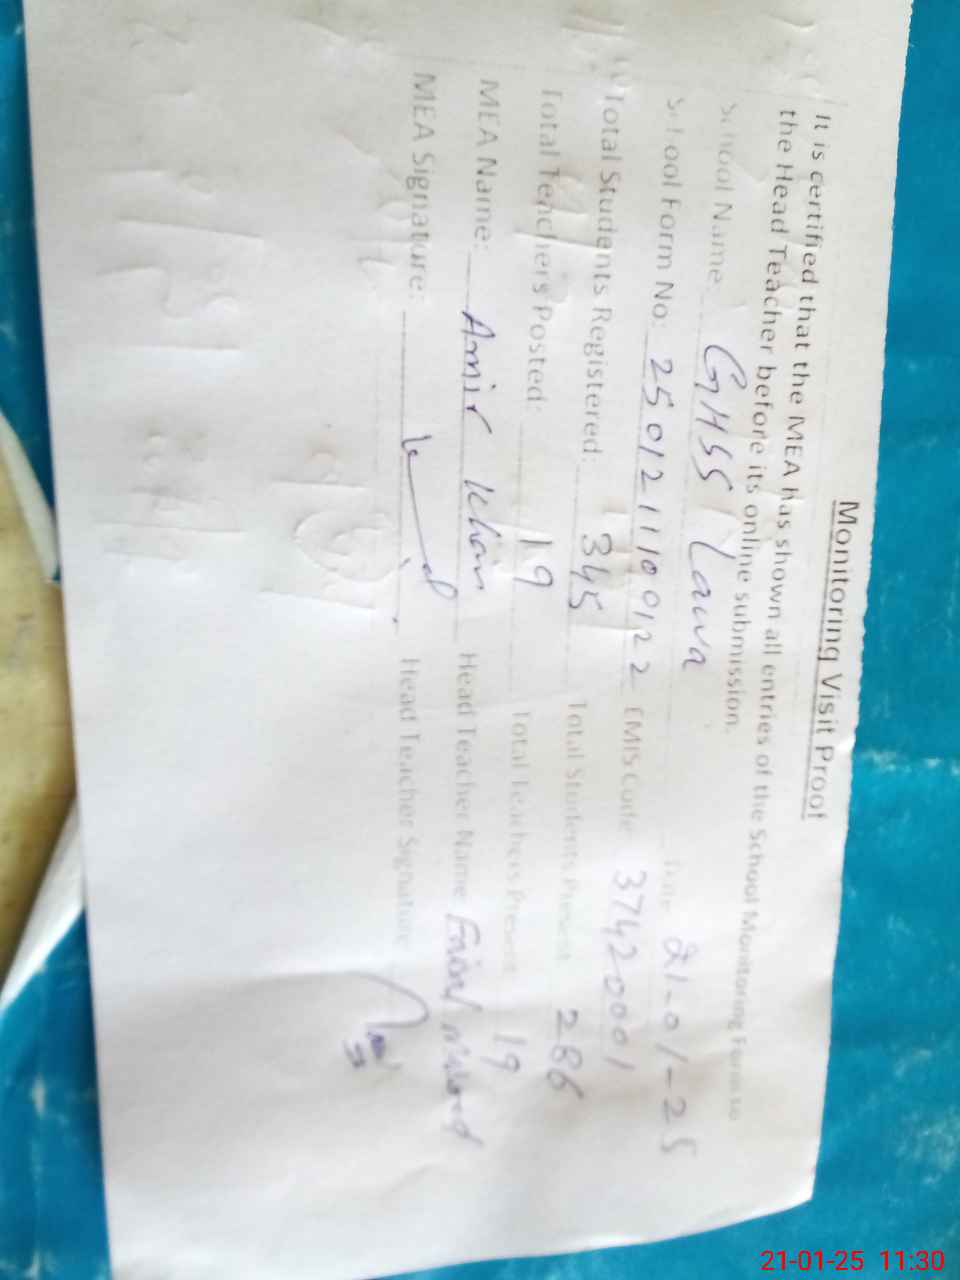 Monitoring Visit Proof
It is certified that the MEA has shown all entries of the School Monitoring Form to
the Head Teacher before its online submission.
School Name: GHSS Lawa Date 21-01-25
School Form No: 2501211109122 EMIS Code 37420001
Total Students Registered: 345 Total Students Present 286
Total Teachers Posted: 19 Total Teachers Present 19
MEA Name: Amir Khan Head Teacher Name
MEA Signature: Head Teacher Signature
21-01-25 11:30